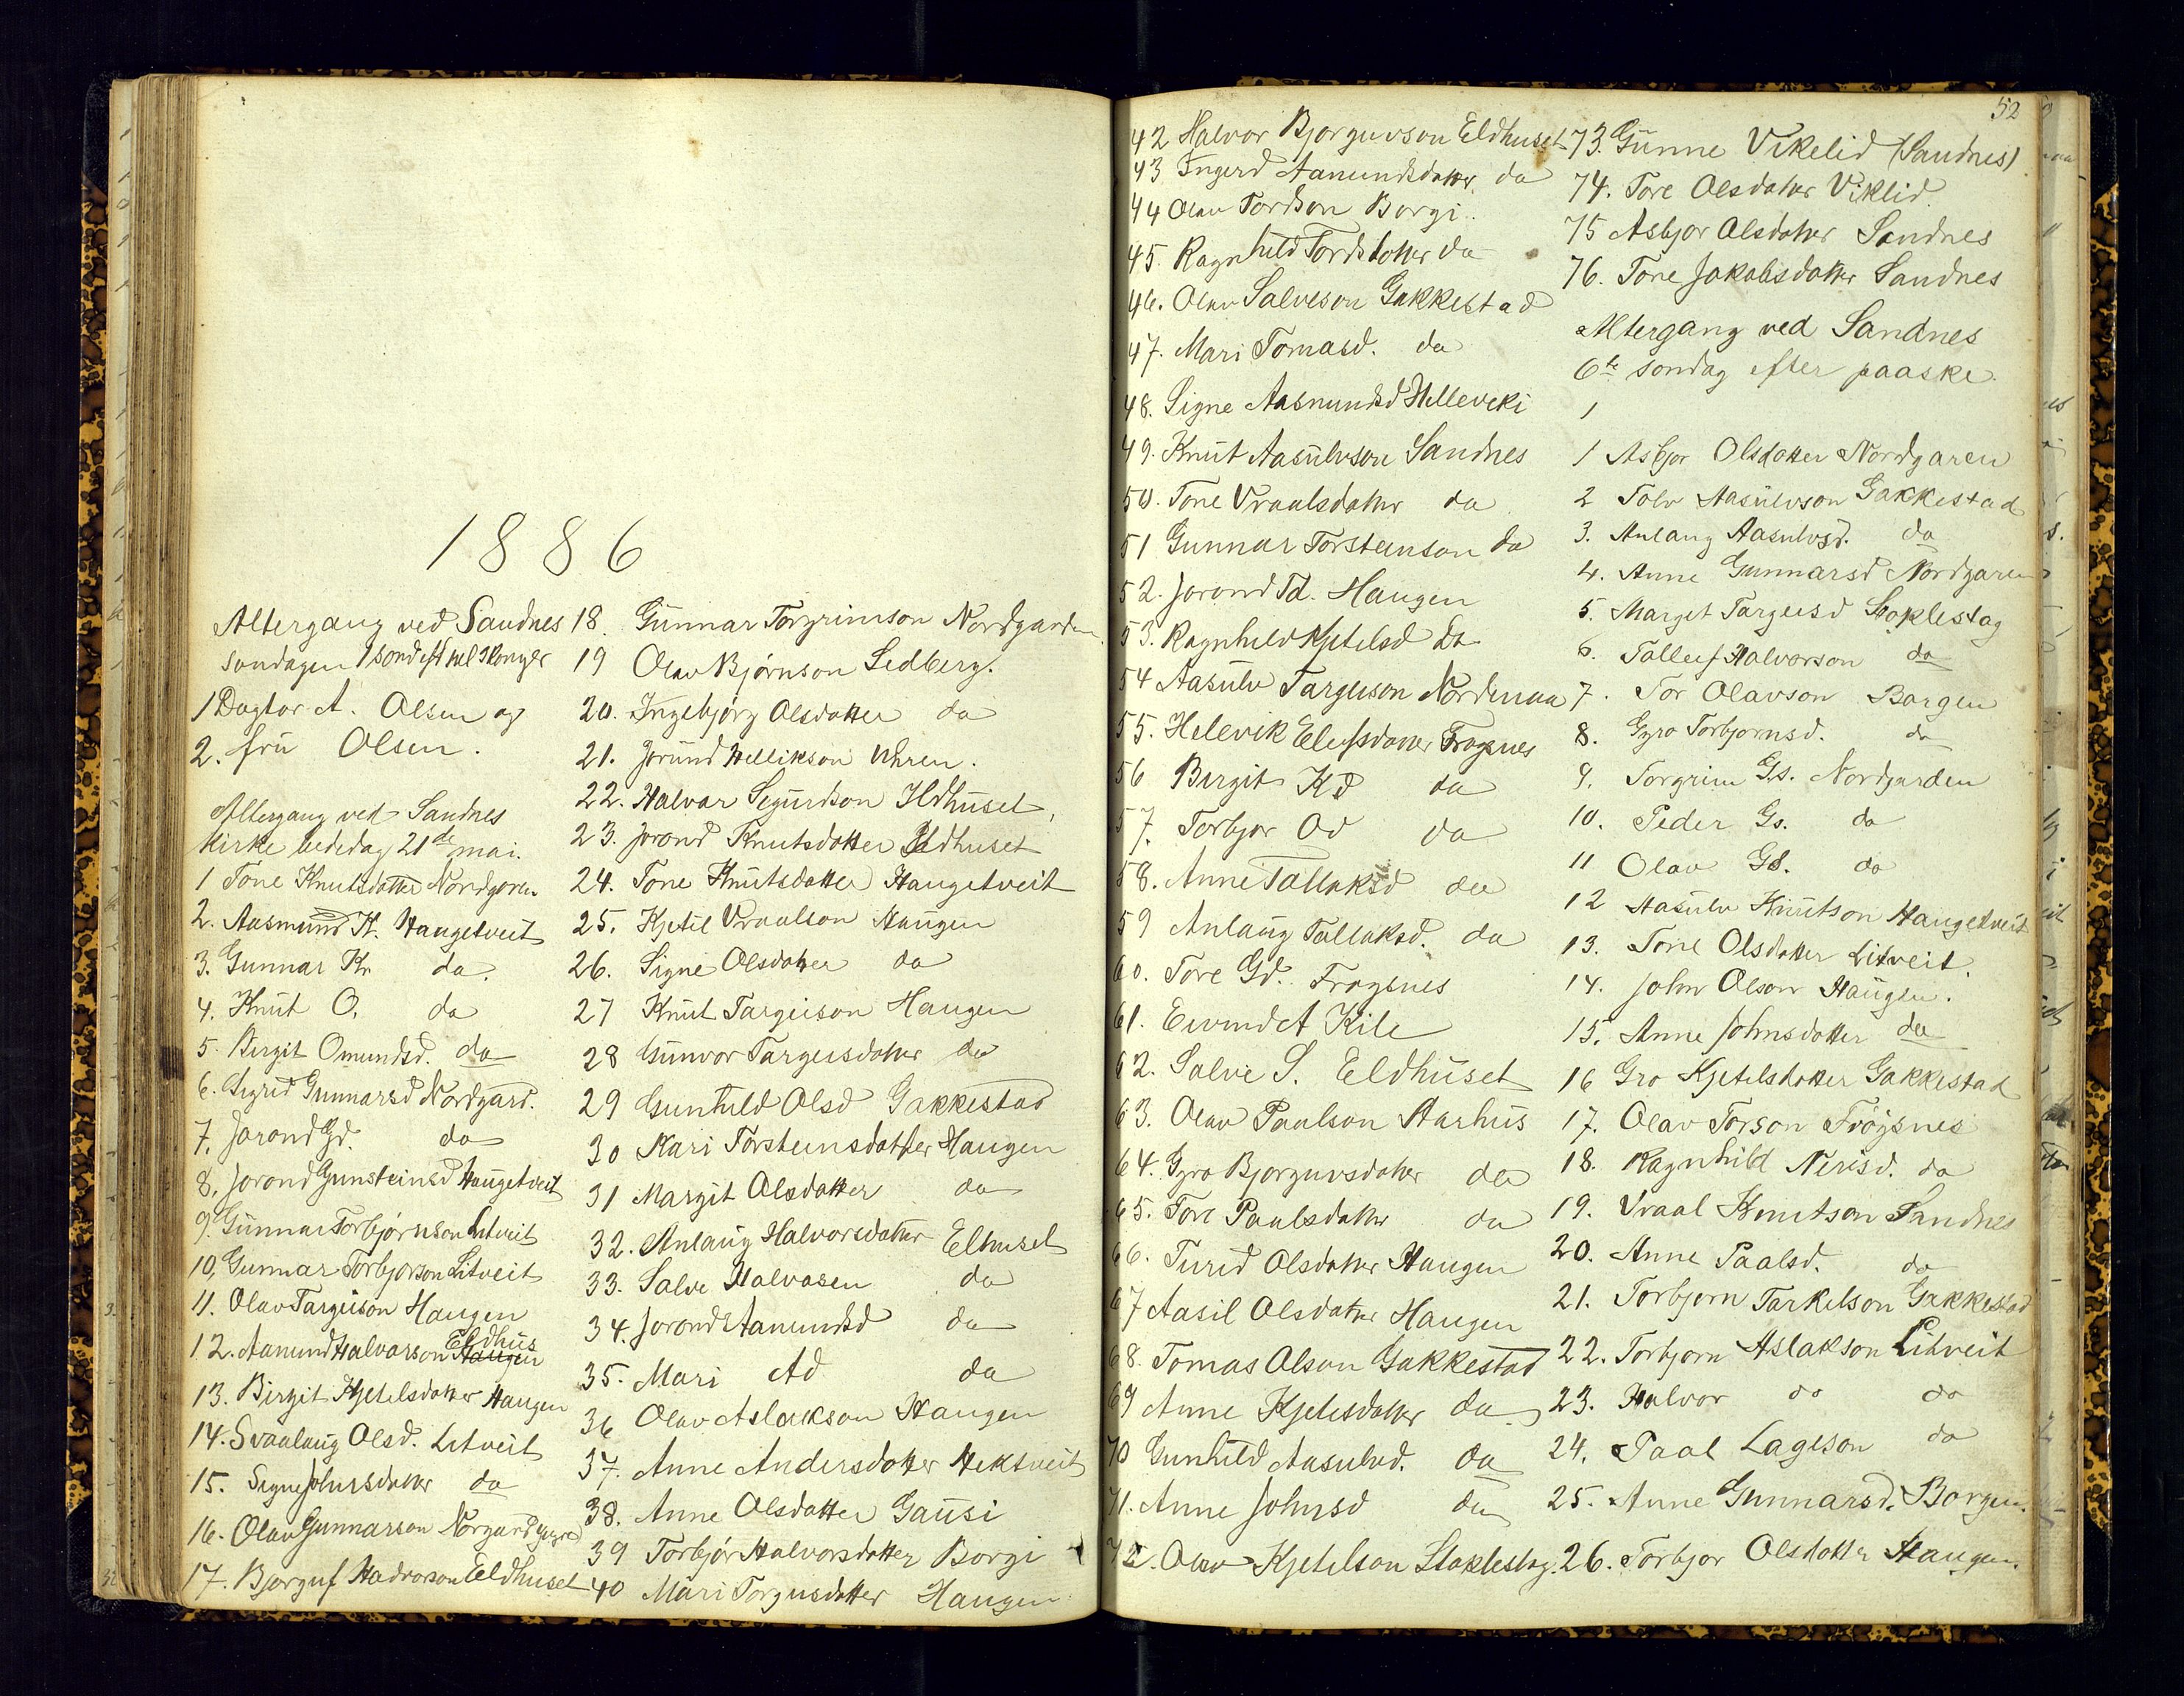 1886
Altergang ved Sandnes
sondagen 1 sond eft hel 3 konger
1 Dogtor A. Olsen og
2. frü Olsen.
Altergang ved Sandnes
kirke bededag 21de mai.
1 Tone Knutsdatter Nordgaren
2. Aasmund K. Haugetveit
3. Gunnar Kr. da.
4. Knut O. da
5. Birgit Omundsd. da
6. Sigrid Gunnarsd Nordgard.
7. Jorond Gd. da
8. Jorond Gunsteinsd Haugetveit
9. Gunnar Torbjørnson Litveit
10. Gunnar Torbjorson Litveit
11. Olav Targeison Haugen
12. Aamund Halvorson Eldhus
13. Birgit Kjetelsdatter Haugen
14. Svaalaug Olsd. Litveit
15. Signe Johnsdatter da
16. Olav Gunnarson Norgard
17. Bjorguf Hadvorson Eldhuset
18. Gunnar Torgrimson Nordgarden.
19 Olav Bjørnson Ledberg.
20. Ingebjørg Olsdatter da
21. Jorund Hellikson Uhren.
22. Halvor Segurdson Ildhuset
23. Jorond Knutsdatter Eldhuset
24. Tone Knutsdatter Haugetveit
25. Kjetil Vraalson Haugen
26. Signe Olsdatter da
27 Knut Targeison Haugen
28 Gunvor Targeisdatter da
29 Gunhild Olsd Gakkestad
30 Kari Torsteinsdatter Haugen
31 Margit Olsdatter da
32. Anlaug Halvorsdatter Elhuset
33. Salve Halvosen da
34. Jorond Aamundsd da
35. Mari Ad da
36 Olav Aslakson Haugen
37. Anne Andersdotter Heksveit
38. Anne Olsdatter Gausi
39 Torbjør Halvorsdatter Borgi
40 Mari Torgusdatter Haugen
52
42 Halvor Bjorguvson Eldhuset
43 Ingerd Aamundsdatter da
44 Olav Tordson Borgi.
45. Ragnhild Tordsdotter da
46. Olav Salveson Gakkestad
47. Mari Tomasd. da
48. Signe Aasmundsd Helleveki
49. Knut Aasulvson Sandnes
50. Tone Vraalsdatter da
51 Gunnar Torsteinson da
52. Jorond Td. Haugen
53. Ragnhild Kjetelsd Do
54 Aasulv Targeison Nordenaa
55. Helevik Elefsdatter Frøysnes
56 Birgit Kd da
57. Torbjor Od da
58. Anne Tallaksd da
59 Anlaug Tallaksd. da
60. Tore Gd. Froysnes
61. Eivind A Kile
62. Salve S. Eldhuset
63. Olav Paulson Aarhus
64. Gyro Bjorguvsdatter da
65. Tore Paulsdatter da
66. Turid Olsdatter Haugen
67 Aasil Olsdatter Haugen
68. Tomas Olson Gakkestad
69 Anne Kjetelsdatter da
70 Gunhild Aasulvd. da
71. Anne Johnsd da
72. Olav Kjetelson Stoklestog
73. Gunne Vikelid (Sandnes)
74. Tore Olsdatter Viklid.
75 Asbjor Olsdatter Sandnes
76. Tone Jakobsdatter Sandnes
Altergang ved Sandnes
6te sondag efter paaske.
1
1 Asbjor Olsdotter Nordgaren
2 Tolv Aasulvson Gakkestad
3. Anlaug Aasulvsd. da
4. Anne Gunnarsd Nordgaren
5. Marget Targeisd Stoklestog
6. Tallef Halvorson da
7. Tor Olavson Borgen
8. Gyro Torbjornsd. da
9. Torgrim Gs. Nordgarden
10. Peder Gs. da
11 Olav GS. da
12 Aasulv Knutson Haugetveit
13. Tone Olsdatter Litveit.
14. John Olson Haugen.
15. Anne Johnsdotter da
16 Gro Kjetelsdotter Gakkestad
17. Olav Torson Frøysnes
18. Ragnhild Nerisd. da
19. Vraal Knutson Sandnes
20. Anne Paalsd. da
21. Torbjorn Tarkelson Gakkestad
22. Torbjorn Aslakson Litveit
23. Halvor do do
24. Paal Lageson do
25. Anne Gunnarsd. Borgen.
26. Torbjor Olsdotter Haugen.